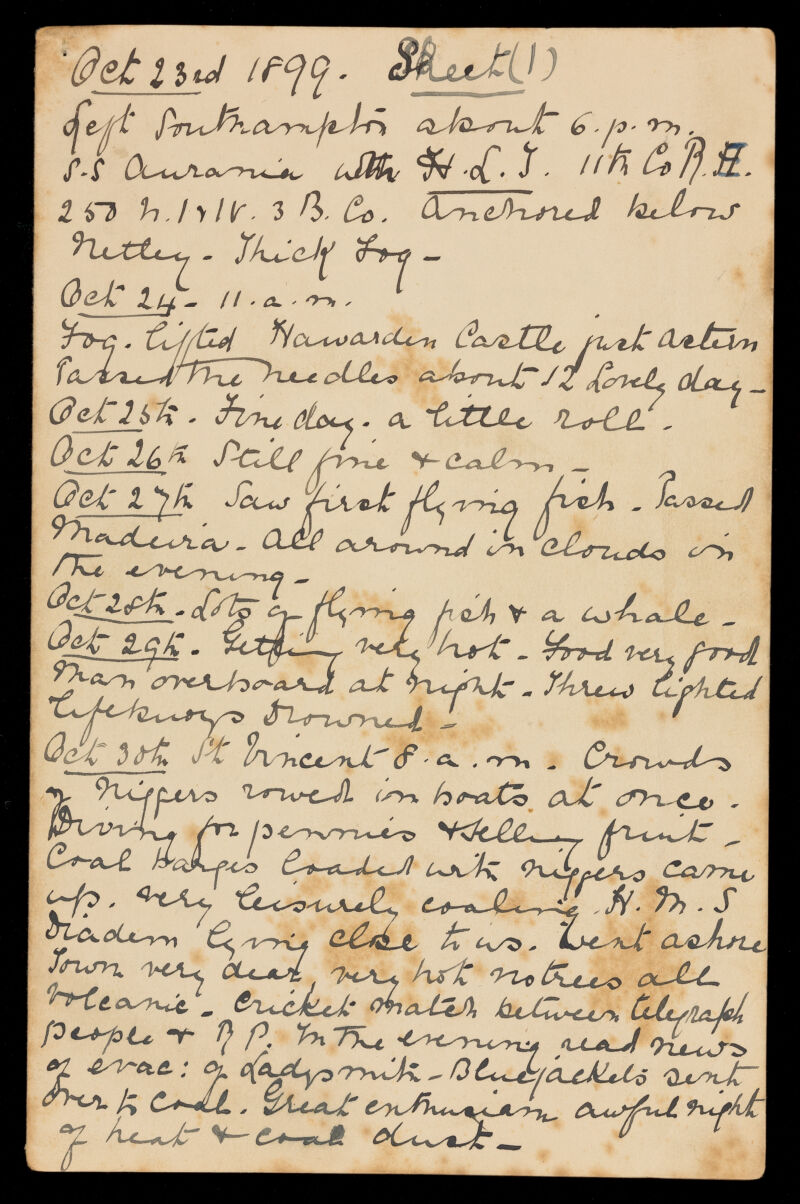 Oct 23rd 1899. Sheet (1)
Left Southampton about 6.p.m.
S.S Aurania with H.L.I. 11th Co R.E.
250 3 B. Co. Anchored below
Netley - Thick Fog -
Oct 24 - 11.a.m.
Fog. lifted Hawarden Castle just astern
Passed the needles about 12 Lovely day -
Oct 25th. Fine day. a little roll.
Oct 26th Still fine & calm -
Oct 27th Saw first flying fish - Passed
Madeira - All around in clouds in
the evening -
Oct 28th - Lots of flying fish & a whale -
Oct 29th. Getting very hot - Food very good
Man overboard at night - Threw lighted
lifebuoys Drowned -
Oct 30th St Vincent 8.a.m. Crowds
of niggers rowed in boats at once.
Diving for pennies & selling fruit -
Coal barges loaded with niggers came
up. very leisurely coaling. H.M.S
Diadem lying close to us. Went ashore
Town very dear, very hot no trees all
volcanic - cricket match between telegraph
people & In the evening read news
of evac: of Ladysmith - Bluejackets sent
over to coal. Great enthusiasm awful night
of heat & coal dust -